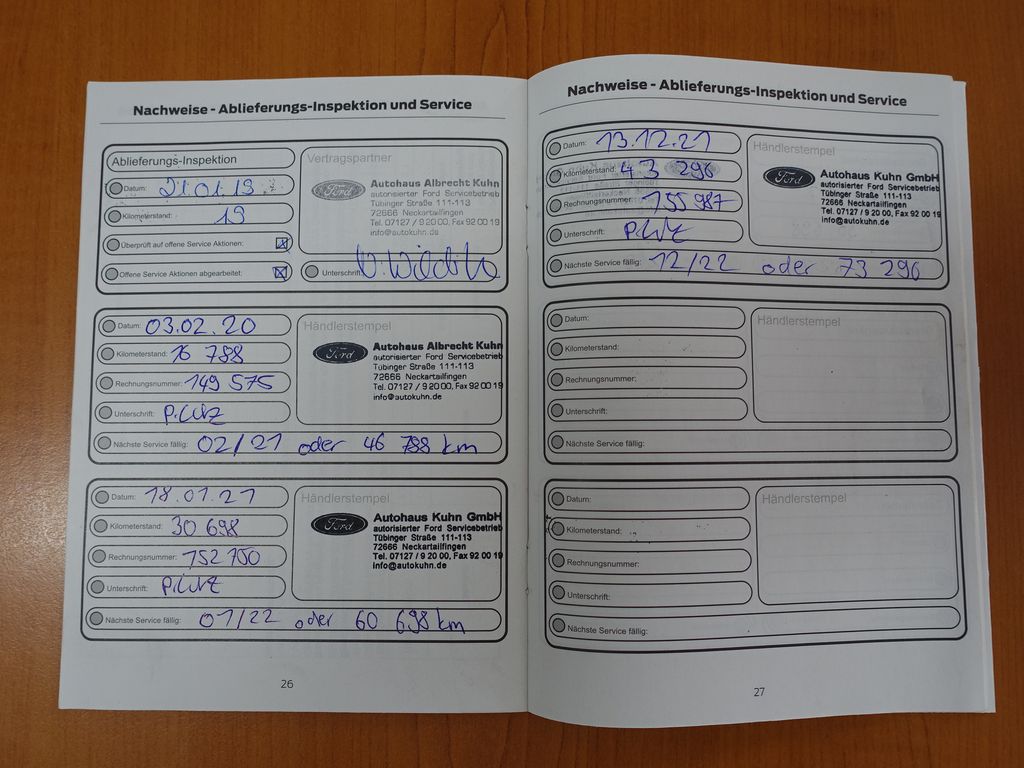 Nachweise - Ablieferungs-Inspektion und Service
Ablieferungs-Inspektion
Datum: 21.01.19
Kilometerstand: 19
Überprüft auf offene Service Aktionen:
Offene Service Aktionen abgearbeitet:
Vertragspartner
Ford
Autohaus Albrecht Kuhn
autorisierter Ford Servicebetrieb
Tübinger Straße 111-113
72666 Neckartailfingen
Tel. 07127 / 9 20 00, Fax 92 00 19
info@autokuhn.de
Unterschrift:
Datum: 03.02.20
Kilometerstand: 16 788
Rechnungsnummer: 149 575
Unterschrift:
Händlerstempel
Ford
Autohaus Albrecht Kuhn
autorisierter Ford Servicebetrieb
Tübinger Straße 111-113
72666 Neckartailfingen
Tel. 07127 / 9 20 00, Fax 92 00 19
info@autokuhn.de
Nächste Service fällig: 02/21 oder 46 788 km
Datum: 18.01.21
Kilometerstand: 30 698
Rechnungsnummer: 152 700
Unterschrift:
Händlerstempel
Ford
Autohaus Kuhn GmbH
autorisierter Ford Servicebetrieb
Tübinger Straße 111-113
72666 Neckartailfingen
Tel. 07127 / 9 20 00, Fax 92 00 19
info@autokuhn.de
Nächste Service fällig: 01/22 oder 60 698 km
26
Nachweise - Ablieferungs-Inspektion und Service
Datum: 13.12.21
Kilometerstand: 43 296
Rechnungsnummer: 155 987
Unterschrift:
Händlerstempel
Ford
Autohaus Kuhn GmbH
autorisierter Ford Servicebetrieb
Tübinger Straße 111-113
72666 Neckartailfingen
Tel. 07127 / 9 20 00, Fax 92 00 19
info@autokuhn.de
Nächste Service fällig: 12/22 oder 73 296
Datum:
Kilometerstand:
Rechnungsnummer:
Unterschrift:
Händlerstempel
Nächste Service fällig:
Datum:
Kilometerstand:
Rechnungsnummer:
Unterschrift:
Händlerstempel
Nächste Service fällig:
27